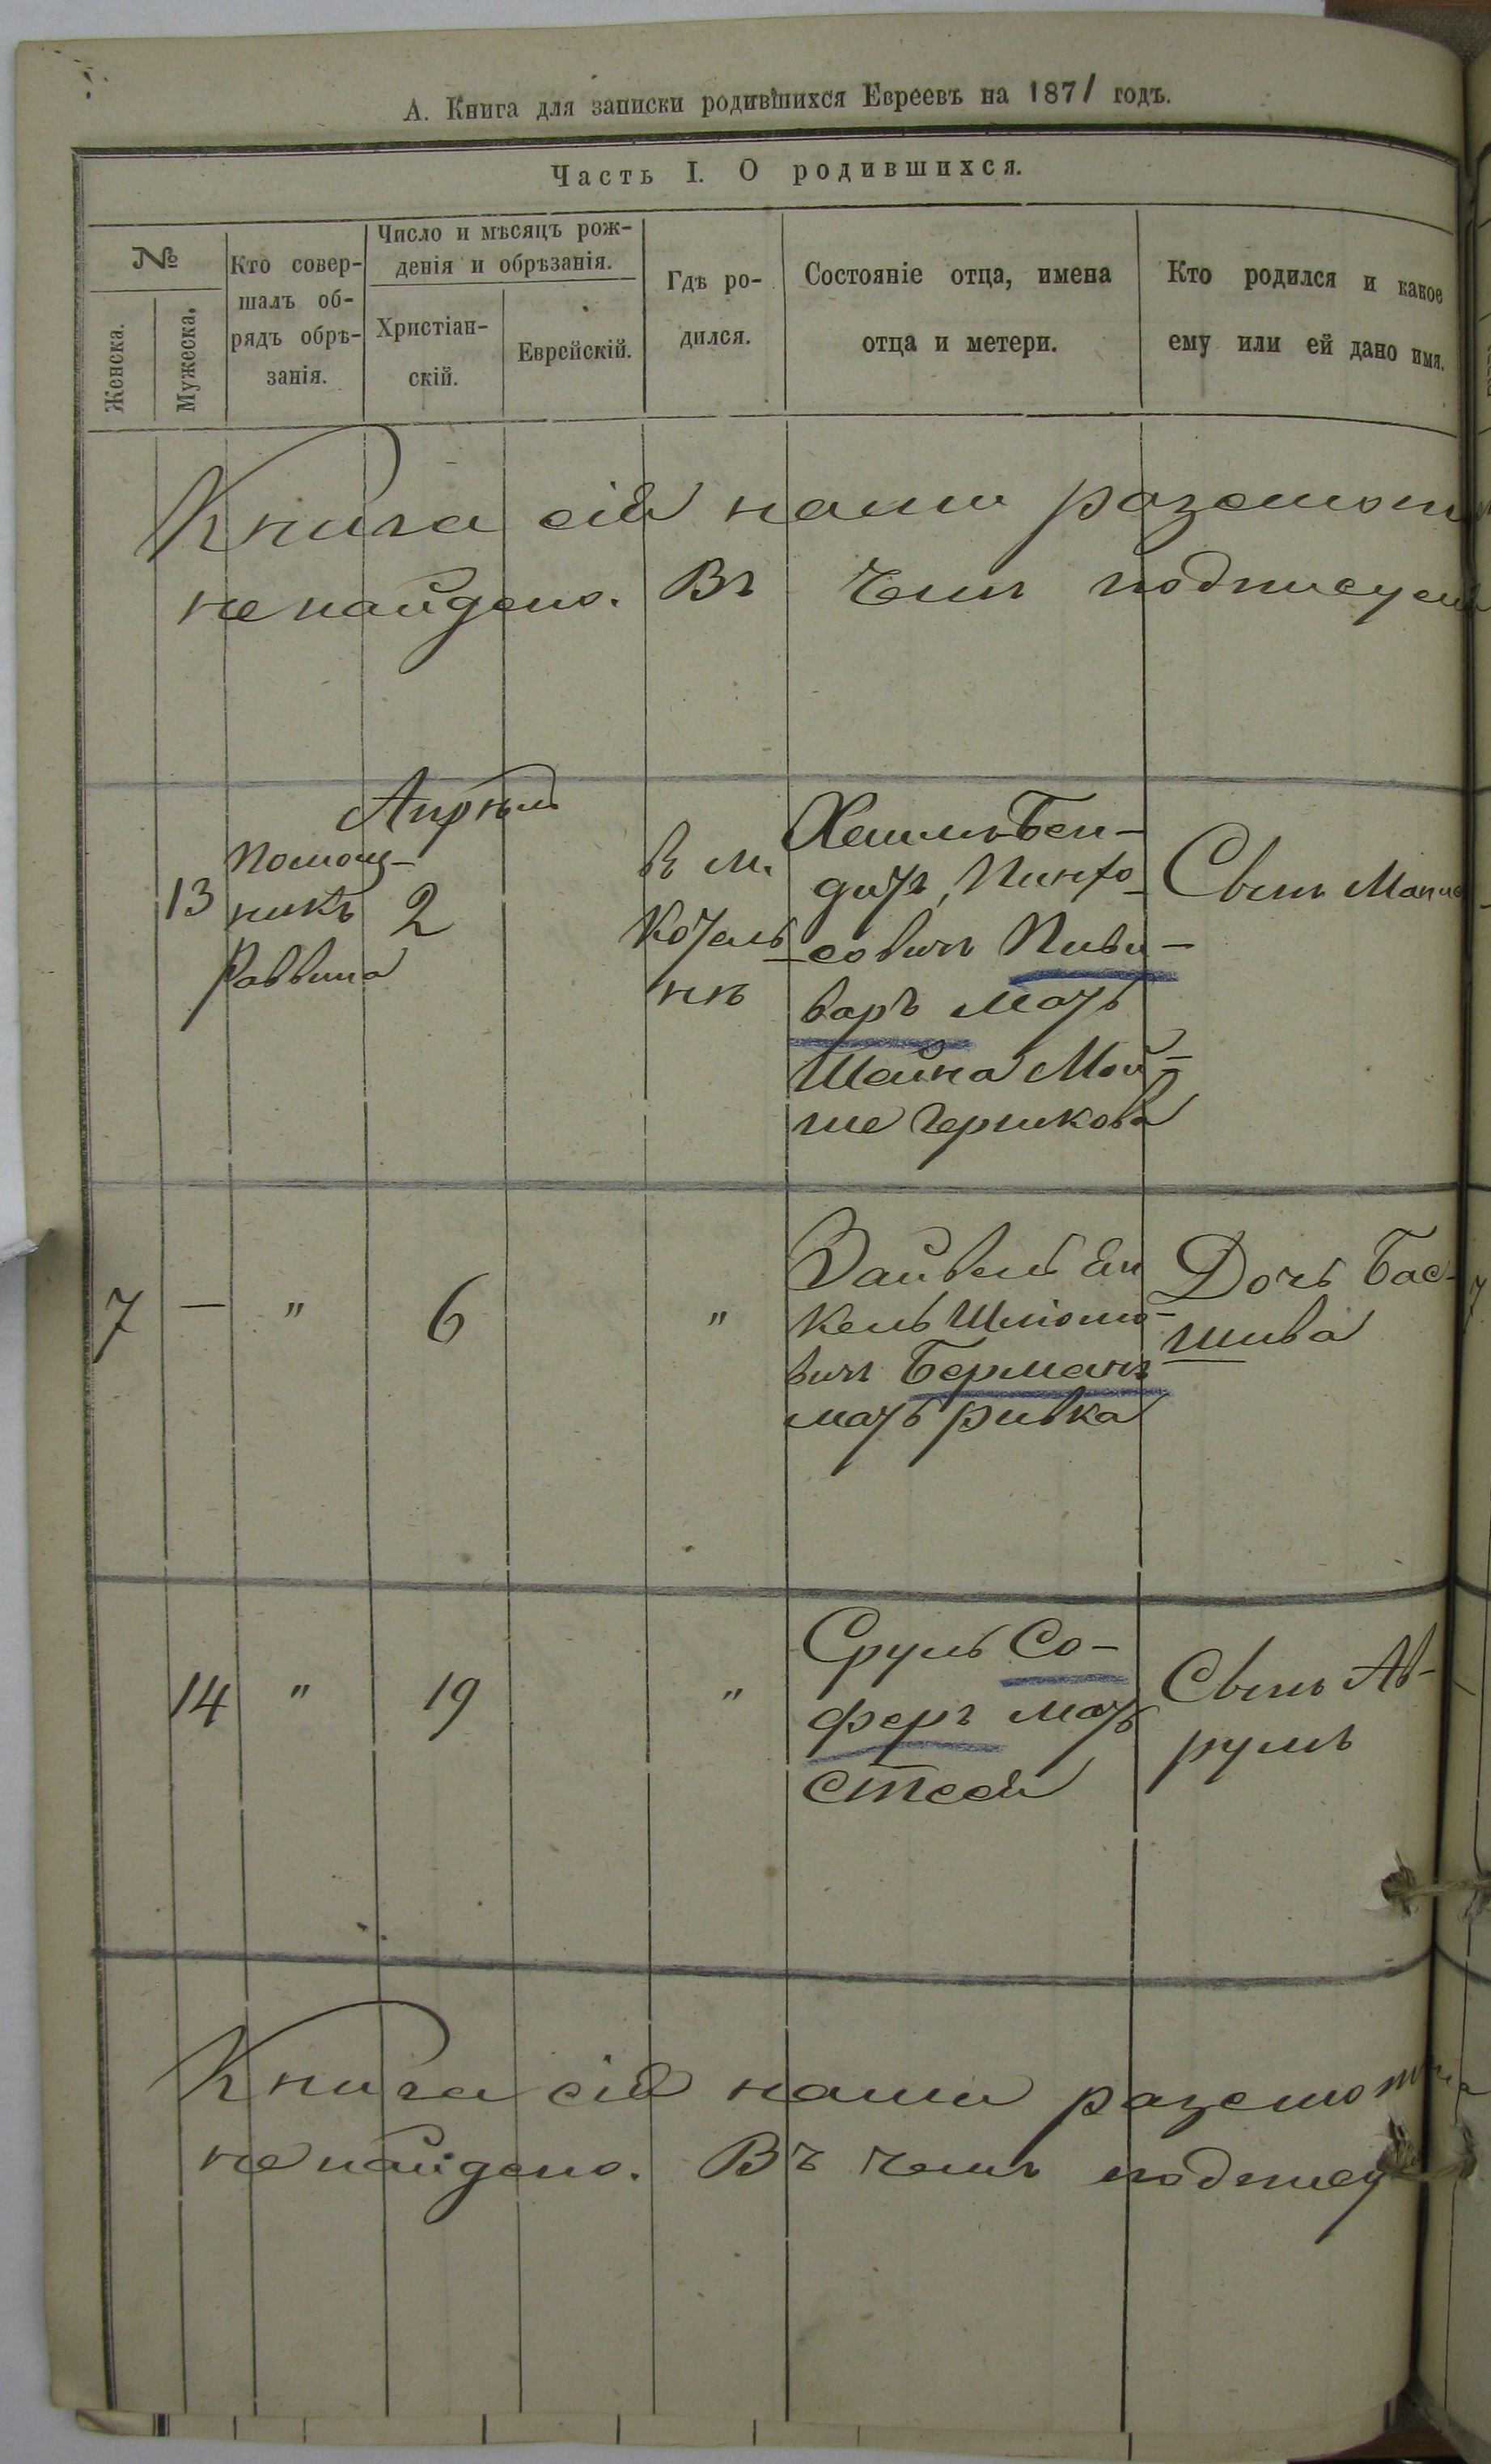 А. Книга для записки родившихся Евреевъ на 1871 годъ.
Часть I. О родившихся.
№
Женска.
Мужеска.
Кто совер-
шалъ об-
рядъ обрѣ-
занія.
Число и мѣсяцъ рож-
денія и обрѣзанія.
Христіан-
скій.
Еврейскій.
Гдѣ ро-
дился.
Состояніе отца, имена
отца и метери.
Кто родился и какое
ему или ей дано имя.
Книга сія нами разсмот
не найдено. Въ чемъ подписуем
Апрѣль
13
Помощ-
никъ
Раввина
2
в м.
Котель
нѣ
Пинхо
совичъ Пиви-
варъ мать
Шейна Мой-
ше
Сынъ
7
—
"
6
"
Зайвель Ян
кель Шліомо-
вичъ Берманъ
мать Ривка
Дочь Бас-
шива
14
"
19
"
Сруль Со-
феръ мать
Стеся
Сынъ Ав-
румъ
Книга сія нами разсмот
не найдено. Въ чемъ подпису